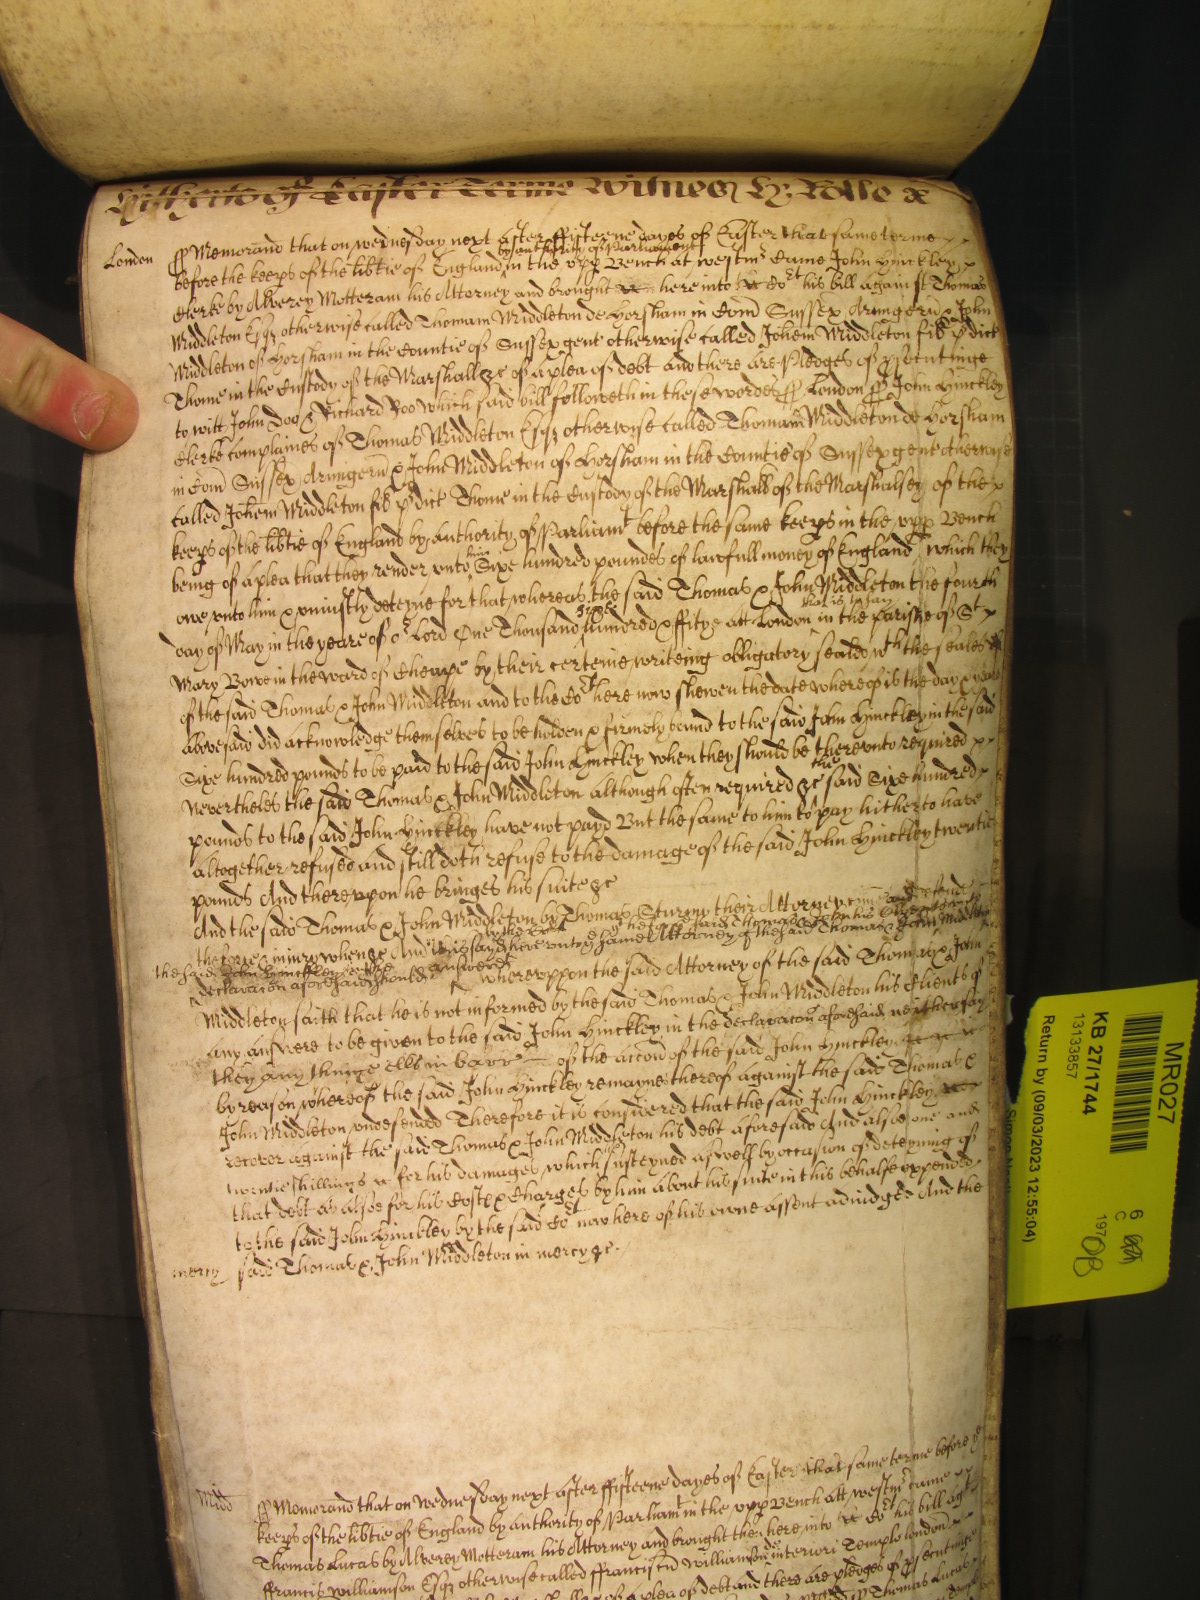 of Easter Terme Witnes H: Rolle &c
London Memorand that on wednesday next after ffifteene dayes of Easter that same terme
by authority of Parliament
before the keeps of the libtie of England in the upp Bench at westm's Came John Hinckley
Clerke by Alverey Motteram his Attorney and brought here into Cot his bill against Thomas
Middleton Esqr otherwise called Thomam Middleton de Horsham in Com Sussex Armigeru & John
Middleton of Horsham in the Countie of Sussex gent otherwise called Johem Middleton fil p dict
Thome in the Custody of the Marshall &c of a plea of debt and there are Pledges of psecutinge
to witt John Doo & Richard Roo which said bill followeth in these wordes London John Hinckley
Clerke complaines of Thomas Middleton Esqr otherwise called Thomam Middleton de Horsham
in Com Sussex Armigeru & John Middleton of Horsham in the Countie of Sussex gent otherwise
called Johem Middleton fil p dict Thome in the Custody of the Marshall of the Marshalsey of the
keeps of the libtie of England by authority of Parliamt before the same keeps in the upp Bench
being of a plea that they render unto him Sixe hundred poundes of lawfull money of England which they
owe unto him & uniustly deteyne for that whereas the said Thomas & John Middleton the fourth
day of May in the yeare of or Lord One Thousand sixe hundred & ffiftye att London that is to say in the parishe of St
Mary Bowe in the ward of Cheape by their certeine writeing obligatory sealed wth the seales
of the said Thomas & John Middleton and to the Cot here now shewen the date whereof is the day & yeare
abovesaid did acknowledge themselves to be holden & firmely bound to the said John Hinckley in the said
Sixe hundred pounds to be paid to the said John Hinckley when they should be thereunto required
Nevertheles the said Thomas & John Middleton although often required &c the said Sixe hundred
pounds to the said John Hinckley have not payd But the same to him to pay hitherto have
altogether refused and still doth refuse to the damage of the said John Hinckley twentie
pounds And thereupon he bringes his suite &c
And the said Thomas & John Middleton by Thomas Sturmy their Attorney come and defend
the force & iniury when &c And
the said John Hinckley
declaracon aforesaid should answere whereuppon the said Attorney of the said Thomas & John
Middleton saith that he is not informed by the said Thomas & John Middleton his Clients of
any answere to be given to the said John Hinckley in the declaracon aforesaid neither say
they any thinge ells in barr of the accon of the said John Hinckley
by reason whereof the said John Hinckley remaynes thereof against the said Thomas &
John Middleton undefended Therefore it is considered that the said John Hinckley
recover against the said Thomas & John Middleton his debt aforesaid And alsoe one and
twentie shillings for his damages which he susteyned aswell by occasion of deteyning of
that debt as alsoe for his Costs & Charges by him about his suite in this behalfe expended
to the said John Hinckley by the said Cot now here of his owne assent adiudged And the
mercy said Thomas & John Middleton in mercy &c
Midd Memorand that on Wednesday next after ffifteene dayes of Easter that same terme before
keeps of the libtie of England by authority of Parliamt in the upp Bench att westmr came
Thomas Lucas by Alverey Motteram his Attorney and brought then here into Cot his bill agt
Francis Williamson Esqr otherwise called ffranciscu Williamson de interiori Templo london
a plea of debt and there are pledges of psecutinge
Thomas Lucas
MR027
KB 27/1744
13133857
Return by (09/03/2023 12:55:04)
6
C
197